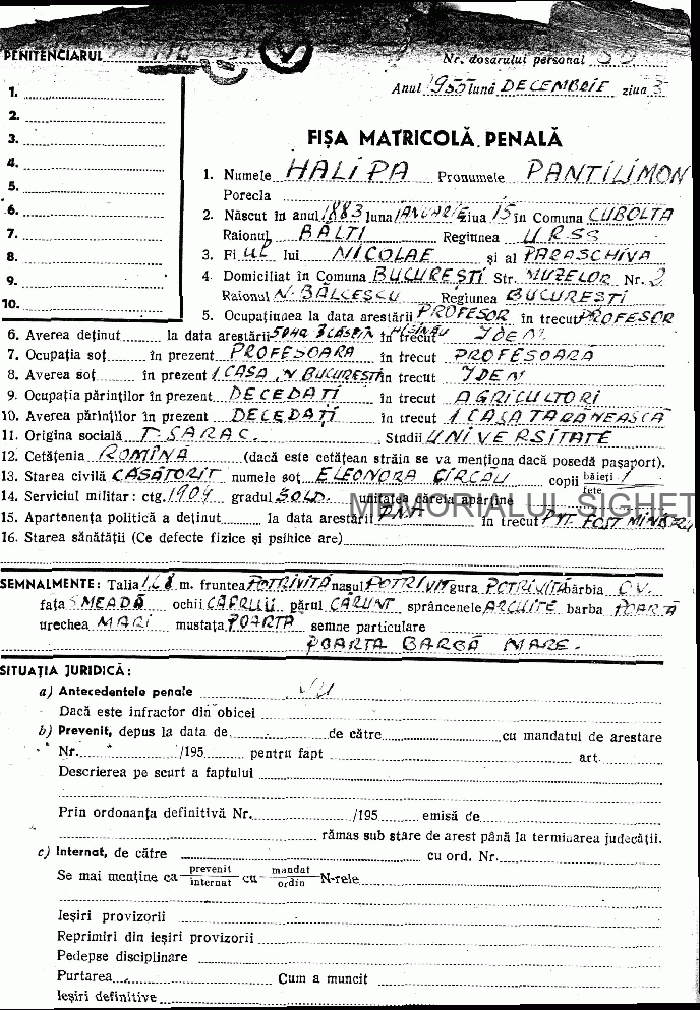 PENITENCIARUL
Nr. dosarului personal
Anul 1955 luna DECEMBRIE ziua 3
1.
2.
3.
4.
5.
6.
7.
8.
9.
10.
FIȘA MATRICOLĂ PENALĂ
1. Numele HALIPA Pronumele PANTILIMON
Porecla
2. Născut în anul 1883 luna IANUARIE ziua 15 în Comuna CUBOLTA
Raionul BĂLTI Regiunea URSS
3. Fiul lui NICOLAE și al PARASCHIVA
4. Domiciliat în Comuna BUCUREȘTI Str. MUZELOR Nr. 2
Raionul N. BĂLCESCU Regiunea BUCUREȘTI
5. Ocupațiunea la data arestării PROFESOR în trecut PROFESOR
6. Averea deținut la data arestării în trecut IDEM
7. Ocupația soț în prezent PROFESOARA în trecut PROFESOARĂ
8. Averea soț în prezent 1 CASA ÎN BUCUREȘTI în trecut IDEM
9. Ocupația părinților în prezent DECEDAȚI în trecut AGRICULTORI
10. Averea părinților în prezent DECEDAȚI în trecut 1 CASA ȚARĂNEASCĂ
11. Origina socială T. SARAC. Studii UNIVERSITATE
12. Cetățenia ROMÎNA (dacă este cetățean străin se va menționa dacă posedă pașaport).
13. Starea civilă CĂSĂTORIT numele soț ELEONORA CIRCAU copii băieți 1 fete
14. Serviciul militar: ctg. 1904 gradul SOLD. unitatea căreia aparține
MEMORIALUL SIGHET
15. Apartenența politică a deținut la data arestării în trecut FOST MINISTRU
16. Starea sănătății (Ce defecte fizice și psihice are)
SEMNALMENTE: Talia 1.68 m. fruntea POTRIVITĂ nasul POTRIVIT gura POTRIVITĂ bărbia
fața SMEADĂ ochii CĂPRUII părul CĂRUNT sprâncenele ARCUITE barba POARTĂ
urechea MARI mustața POARTĂ semne particulare
POARTA BARBĂ MARE.
SITUAȚIA JURIDICĂ:
a) Antecedentele penale NU
Dacă este infractor din obicei
b) Prevenit, depus la data de de către cu mandatul de arestare
Nr. /195 pentru fapt art.
Descrierea pe scurt a faptului
Prin ordonanța definitivă Nr. /195 emisă de
rămas sub stare de arest până la terminarea judecății.
c) Internat, de către cu ord. Nr.
Se mai menține ca prevenit internat cu mandat ordin N-rele
Ieșiri provizorii
Reprimiri din ieșiri provizorii
Pedepse disciplinare
Purtarea Cum a muncit
Ieșiri definitive